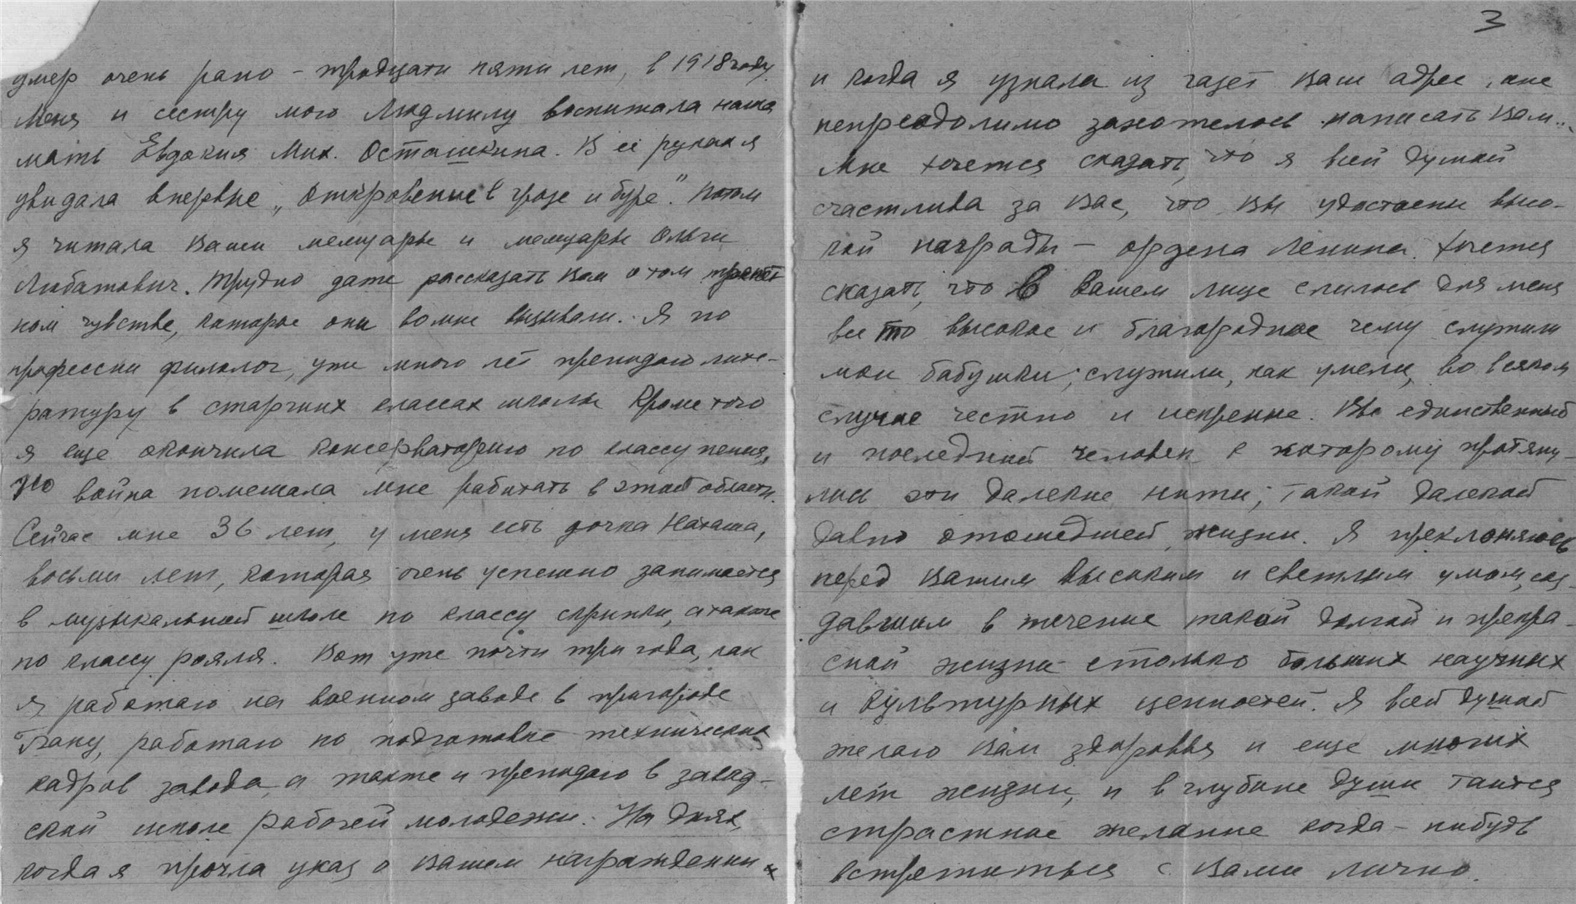 умер очень рано – тридцати пяти лет, в 1918 году.
Меня и сестру мою Людмилу воспитала наша
мать Евдокия Мих. Осташкина. В её руках я
увидала впервые „Откровение в грозе и буре". Потом
я читала Ваши мемуары и мемуары Ольги
Любатович. Трудно даже рассказать Вам о том
ном чувстве, которое они во мне вызывали. Я по
профессии филолог, уже много лет преподаю лите-
ратуру в старших классах школы. Кроме того
я еще окончила консерваторию по классу пения,
но война помешала мне работать в этой области.
Сейчас мне 36 лет, у меня есть дочка Наташа,
восьми лет, которая очень успешно занимается
в музыкальной школе по классу скрипки, а также
по классу рояля. Вот уже почти три года, как
я работаю на военном заводе в пригороде
Баку, работаю по подготовке технических
кадров завода, а также и преподаю в завод-
ской школе рабочей молодежи. На днях,
когда я прочла указ о Вашем награждении
3
и когда я узнала из газет Ваш адрес, мне
непреодолимо захотелось написать Вам..
Мне хочется сказать, что я всей душой
счастлива за Вас, что Вы удостоены высо-
кой награды – ордена Ленина. Хочется
сказать, что в Вашем лице слилось для меня
все то высокое и благородное чему служили
мои бабушки; служили, как умели, во всяком
случае честно и искренне. Вы единственный
и последний человек к которому протяну-
лись эти далекие нити, такой далекой
давно отошедшей жизни. Я преклоняюсь
перед Вашим высоким и светлым умом, соз-
давшим в течение такой долгой и прекра-
сной жизни столько больших научных
и культурных ценностей. Я всей душой
желаю Вам здоровья и еще многих
лет жизни, и в глубине души таится
страстное желание когда-нибудь
встретиться с Вами лично.